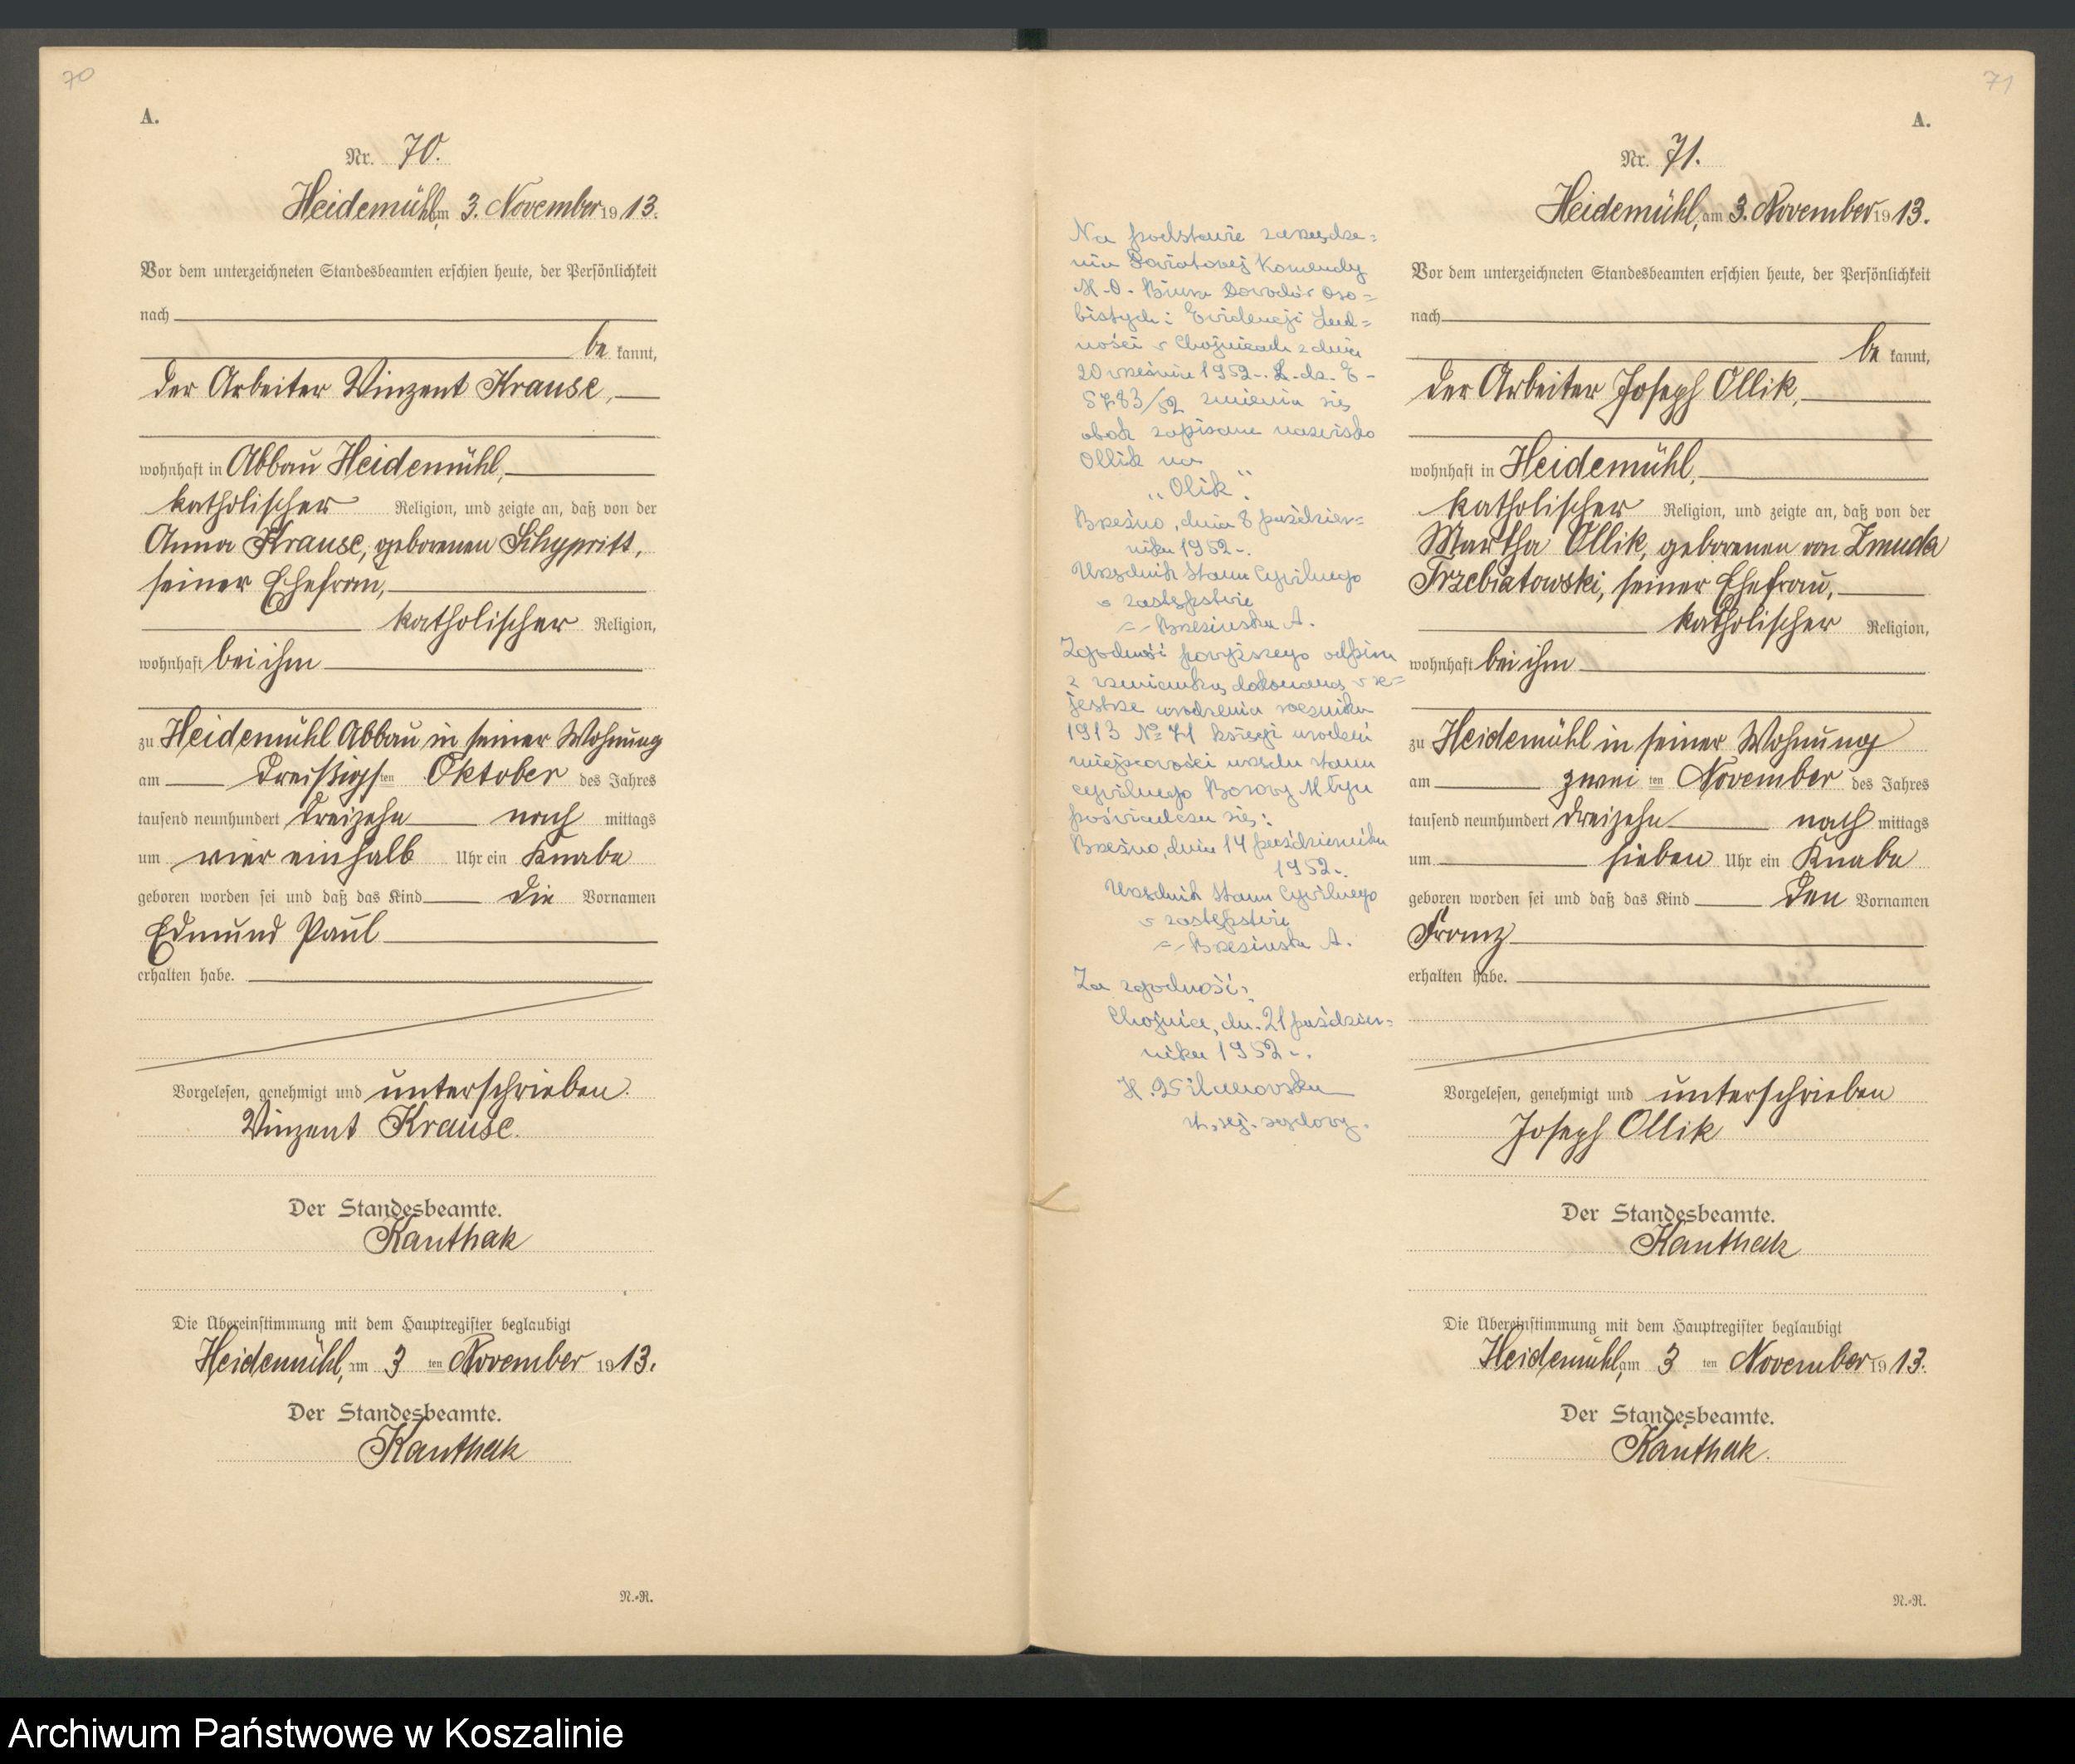 70
A.
Nr. 70.
Heidemühl, am 3. November 1913.
Vor dem unterzeichneten Standesbeamten erschien heute, der Persönlichkeit
nach
be kannt,
der Arbeiter Vinzent Krause,
wohnhaft in Abbau Heidemühl,
katholischer Religion, und zeigte an, daß von der
Anna Krause, geborenen
seiner Ehefrau,
katholischer Religion,
wohnhaft bei ihm
zu Heidemühl Abbau in seiner Wohnung
am dreißigsten Oktober des Jahres
tausend neunhundert dreizehn nach mittags
um vier einhalb Uhr ein Knabe
geboren worden sei und daß das Kind die Vornamen
Edmund Paul
erhalten habe.
Vorgelesen, genehmigt und unterschrieben.
Vinzent Krause.
Der Standesbeamte.
Kanthak
Die Übereinstimmung mit dem Hauptregister beglaubigt
Heidemühl, am 3 ten November 1913.
Der Standesbeamte.
Kanthak
N.-R.
Na podstawie zarządze=
nia Powiatowej Komendy
M.O. Biura Dowodów Oso=
bistych i Ewidencji Lud=
ności w Chojnicach z dnia
20 września 1952 r. L.dz. E-
5783/52 zmienia się
obok zapisane nazwisko
Ollik na
„Olik".
Brzeźno, dnia 8 paździer=
nika 1952 r.
Urzędnik Stanu Cywilnego
w zastępstwie
=-Brzezinska A.
Zgodność powyższego odpisu
z wzmianką dokonaną w re=
jestrze urodzenia rocznika
1913 No 71 księgi urodzeń
miejscowości urzędu stanu
cywilnego Borowy Młyn
poświadcza się:
Brzeźno, dnia 14 października
1952 r.
Urzędnik Stanu Cywilnego
w zastępstwie
=-Brzezinska A.
Za zgodność:
Chojnice, dn. 21 paździer=
nika 1952 r.
H.
sądowy.
71
A.
Nr. 71.
Heidemühl, am 3. November 1913.
Vor dem unterzeichneten Standesbeamten erschien heute, der Persönlichkeit
nach
be kannt,
der Arbeiter Joseph Ollik,
wohnhaft in Heidemühl,
katholischer Religion, und zeigte an, daß von der
Martha Ollik, geborenen von Zmuda
Trzebiatowski, seiner Ehefrau,
katholischer Religion,
wohnhaft bei ihm
zu Heidemühl in seiner Wohnung
am zwei ten November des Jahres
tausend neunhundert dreizehn nach mittags
um sieben Uhr ein Knabe
geboren worden sei und daß das Kind den Vornamen
Franz
erhalten habe.
Vorgelesen, genehmigt und unterschrieben
Joseph Ollik
Der Standesbeamte.
Kanthak
Die Übereinstimmung mit dem Hauptregister beglaubigt
Heidemühl, am 3 ten November 1913.
Der Standesbeamte.
Kanthak.
N.-R.
Archiwum Państwowe w Koszalinie